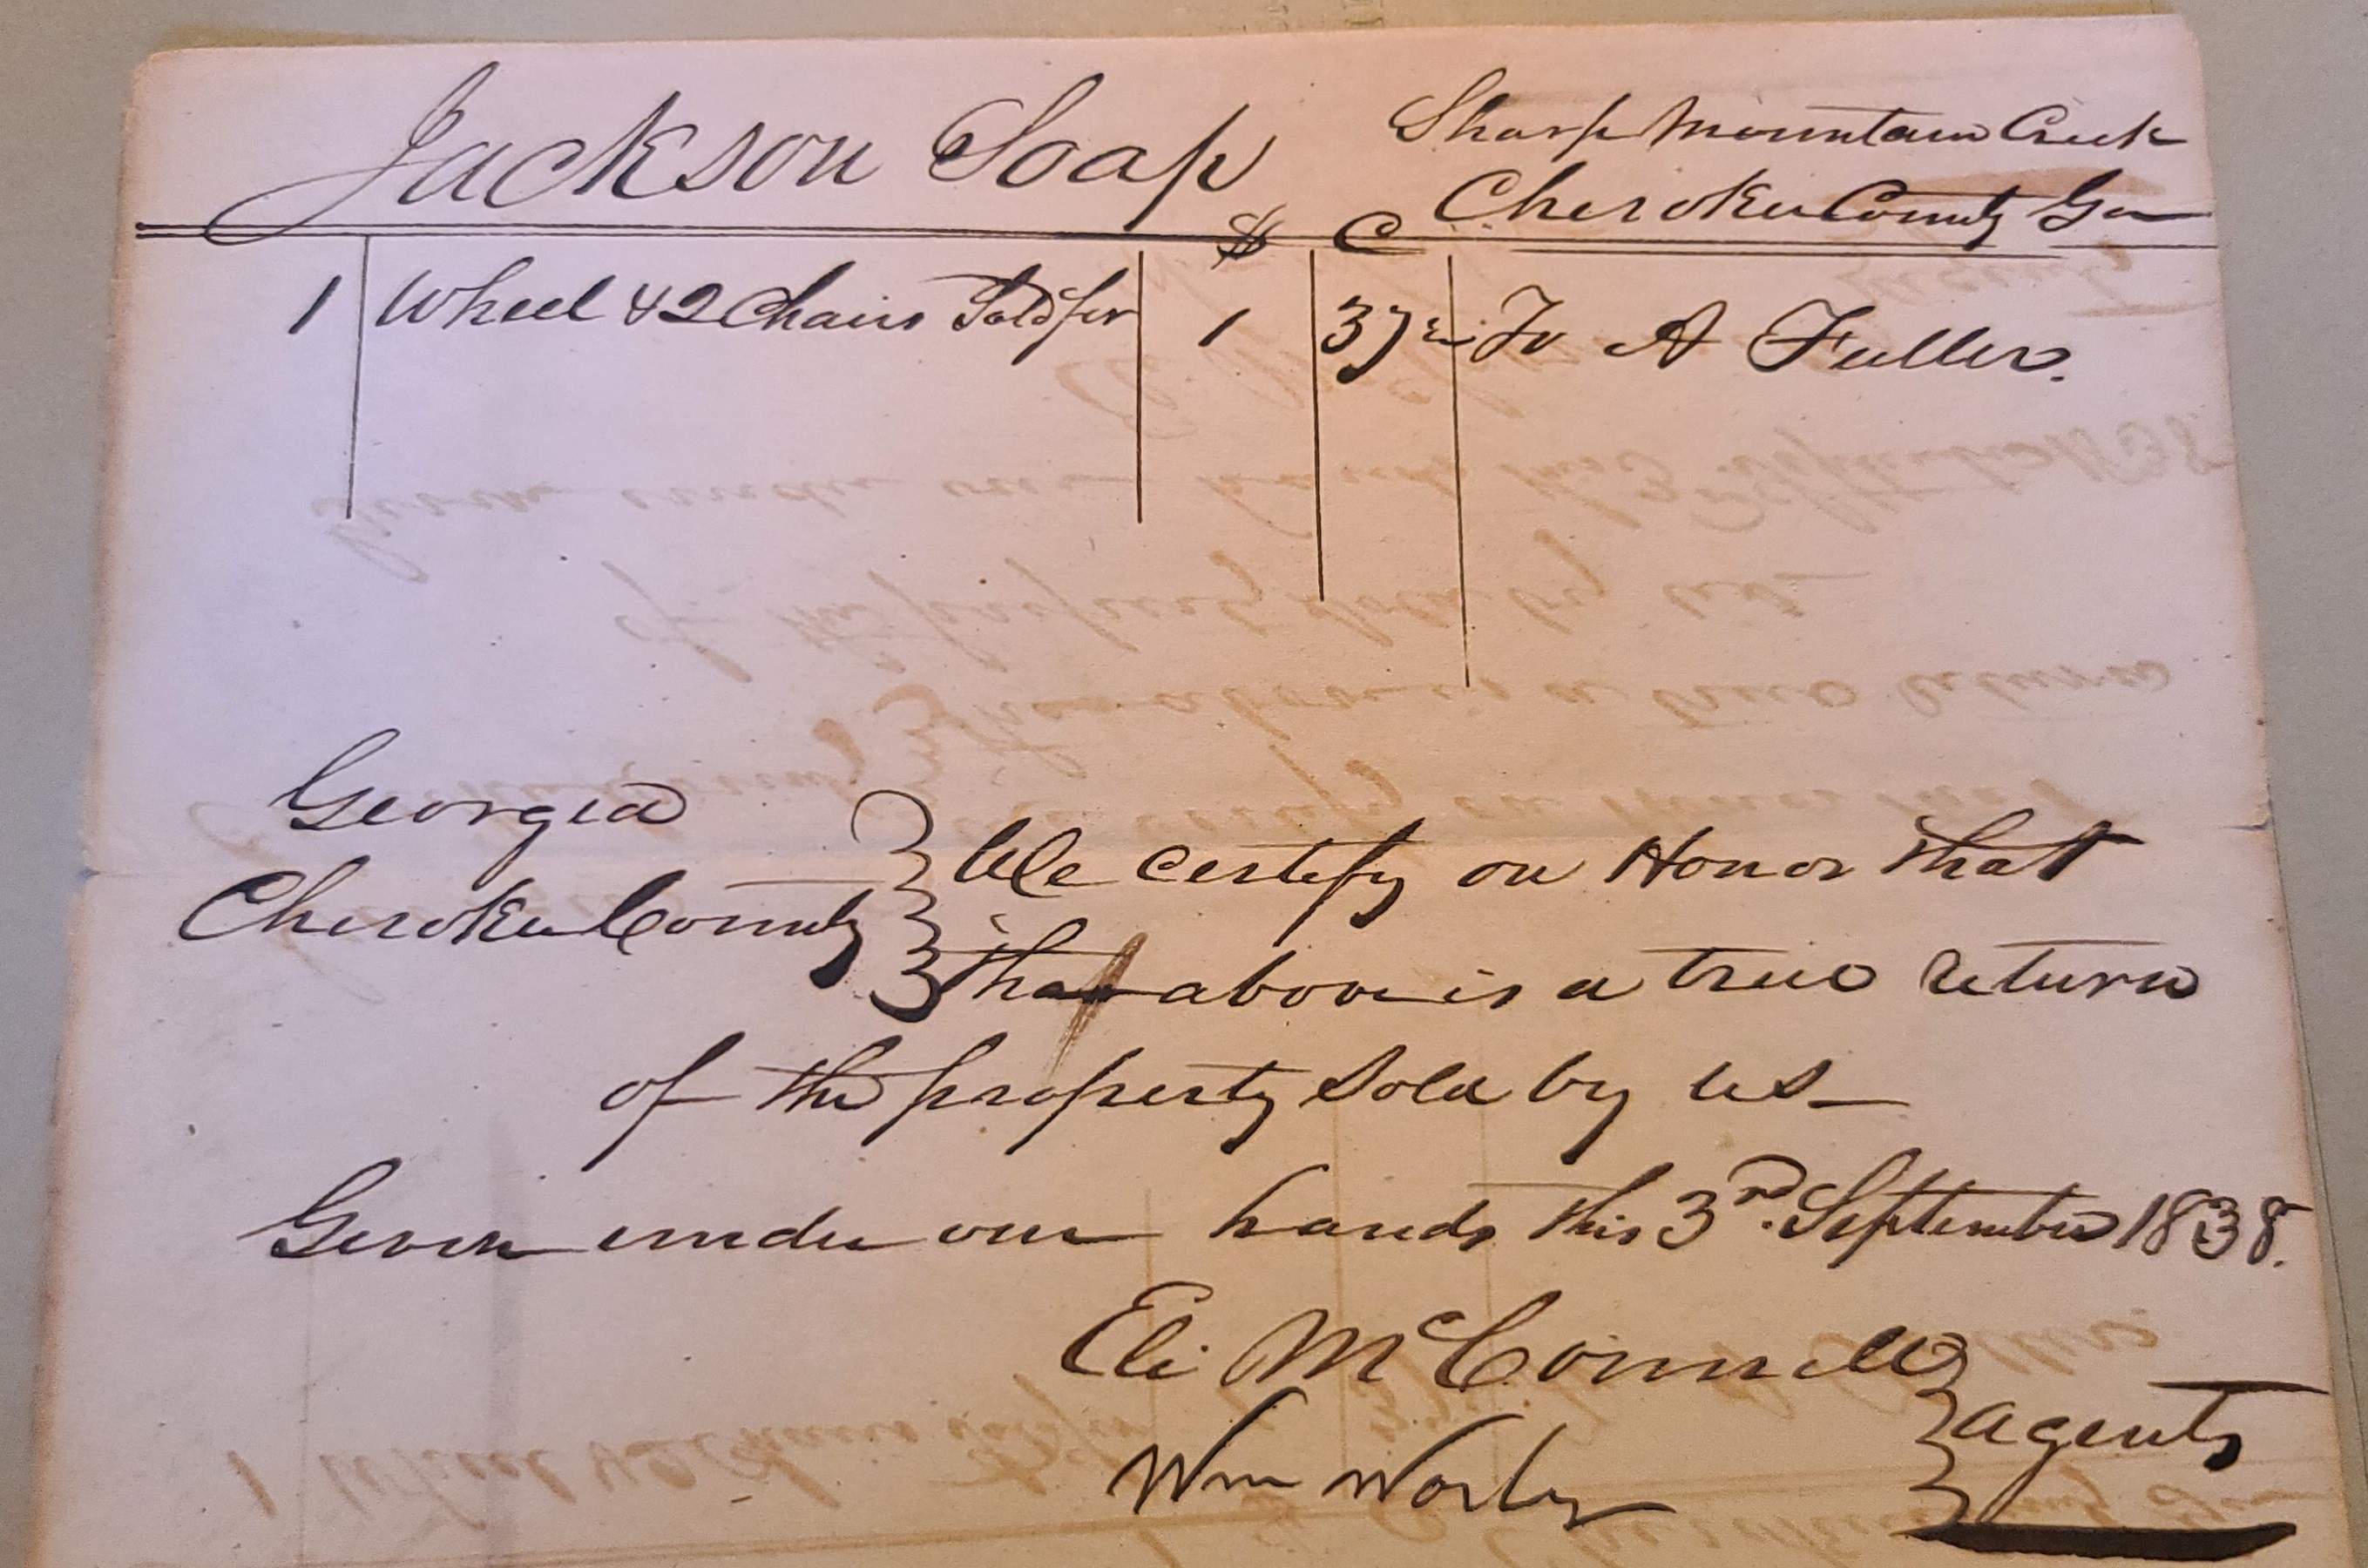 Jackson Soap
Sharp Mountain Creek
Cherokee County Ga
$ C
1 Wheel & 2 Chairs Sold for 1 37½ To A Fuller.
Georgia
Cherokee County } We certify on Honor that
the above is a true return
of the property sold by us
Given under our hands this 3rd. September 1838.
Eli McConnell
Wm Worley } agents